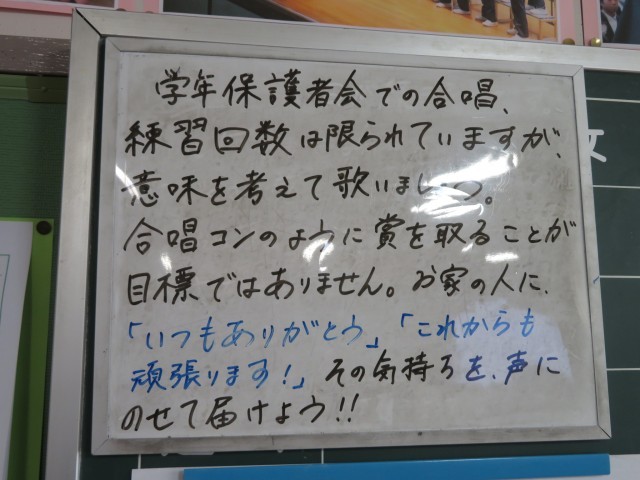 学年保護者会での合唱、
練習回数は限られていますが、
意味を考えて歌いましょう。
合唱コンのように賞を取ることが
目標ではありません。お家の人に、
「いつもありがとう」「これからも
頑張ります！」その気持ちを、声に
のせて届けよう!!